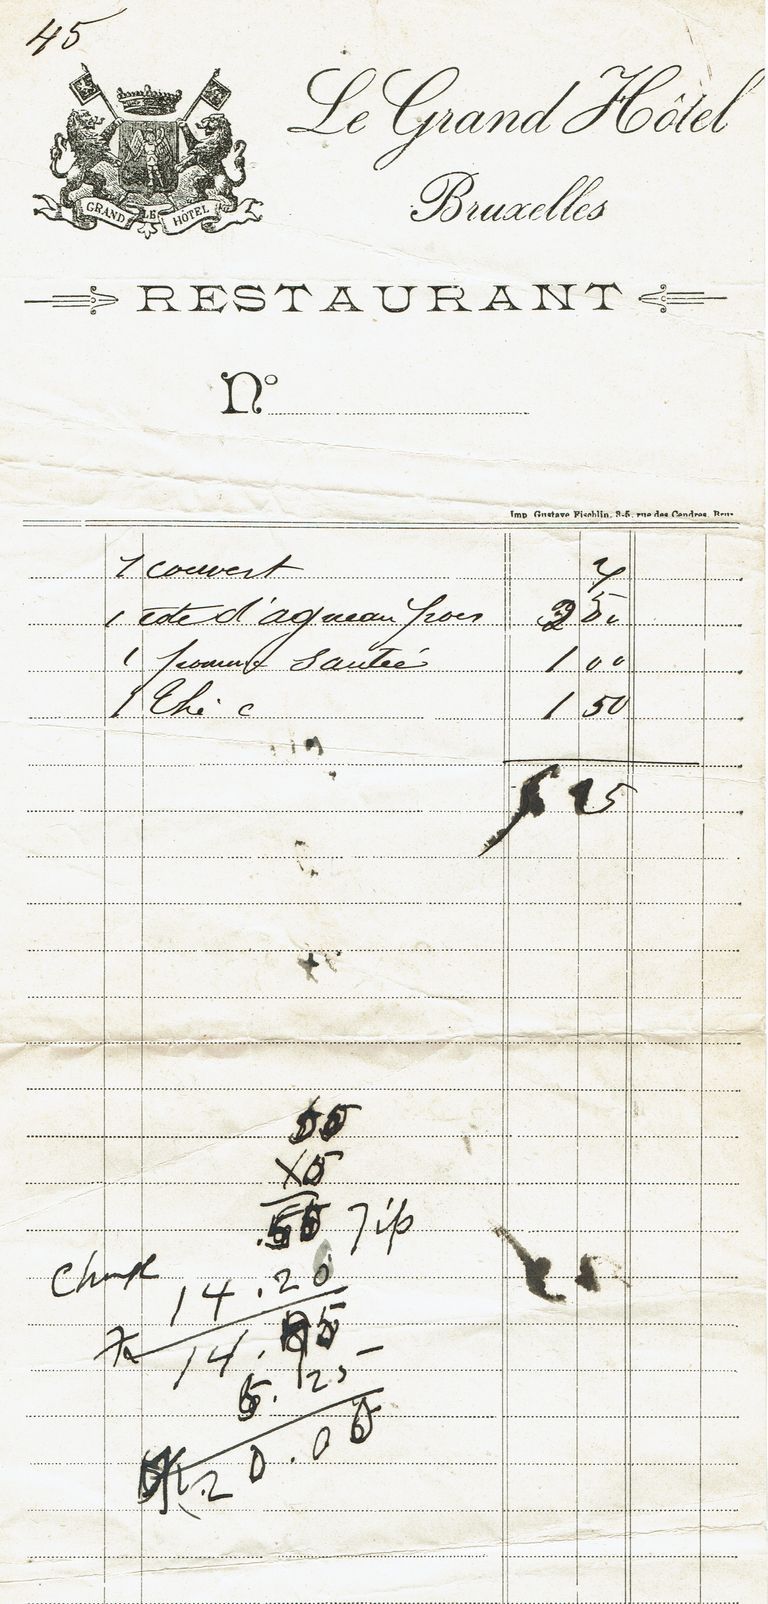 45
GRAND LE HÔTEL
Le Grand Hôtel
Bruxelles
RESTAURANT
No
Imp. Gustave Fischlin, 3-5, rue des Cendres, Brux
1 couvert
1 cote d'agneau 50
1 pommes Sautée 1 00
1 Thé c 1 50
5 25
55
x5
.55 Tip
Change 14.20
14. 5
5.25
20.00